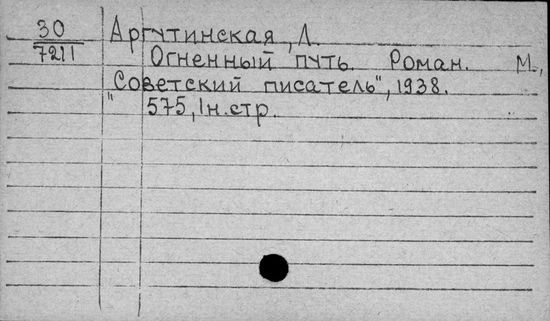 30
7211
Аргутинская, Л.
Огненный путь. Роман. М.,
"Советский писатель", 1938.
575, 1н.стр.